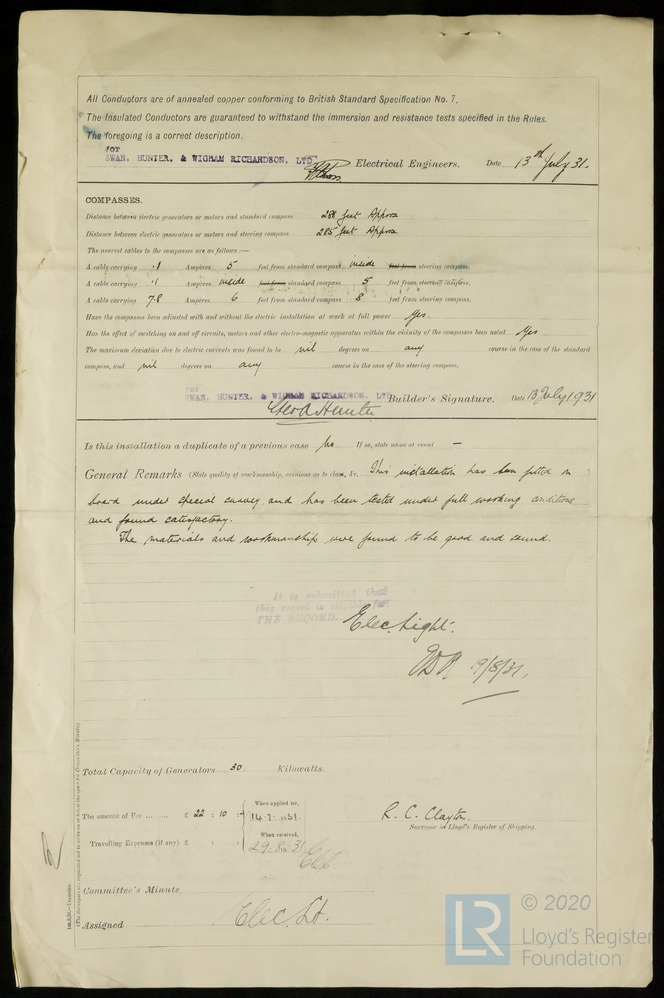 All Conductors are of annealed copper conforming to British Standard Specification No. 7.
The Insulated Conductors are guaranteed to withstand the immersion and resistance tests specified in the Rules.
The foregoing is a correct description.
for
SWAN, HUNTER, & WIGHAM RICHARDSON, LTD Electrical Engineers. Date 13th July 31.
COMPASSES.
Distance between electric generators or motors and standard compass 288 feet Approx
Distance between electric generators or motors and steering compass 285 feet Approx
The nearest cables to the compasses are as follows:—
A cable carrying .1 Amperes 5 feet from standard compass inside feet from steering compass.
A cable carrying .1 Amperes inside feet from standard compass 5 feet from steering compass.
A cable carrying 7.8 Amperes 6 feet from standard compass 8 feet from steering compass.
Have the compasses been adjusted with and without the electric installation at work at full power Yes.
Has the effect of switching on and off circuits, motors and other electro-magnetic apparatus within the vicinity of the compasses been noted Yes
The maximum deviation due to electric currents was found to be nil degrees on any course in the case of the standard
compass, and nil degrees on any course in the case of the steering compass.
For
SWAN, HUNTER, & WIGHAM RICHARDSON, LTD Builder's Signature. Date 13 July 1931
Is this installation a duplicate of a previous case No If so, state name of vessel —
General Remarks (State quality of workmanship, opinions as to class, &c. This installation has been fitted on
board under special survey, and has been tested under full working conditions
and found satisfactory.
The materials and workmanship were found to be good and sound.
It is submitted that
this vessel is eligible for
THE RECORD. Elec. Light.
9/8/31.
Total Capacity of Generators 30. Kilowatts.
The amount of Fee ... ... £ 22 : 10 : - When applied for, 14.7.1931.
Travelling Expenses (if any) £ : : When received, 29.8.31
R. C. Clayton.
Surveyor to Lloyd's Register of Shipping.
Committee's Minute
Assigned Elec. Lt.
Im.8,30—Transfer.
(The Surveyors are requested not to write on or below the space for Committee's Minute.)
LR
© 2020
Lloyd's Register
Foundation